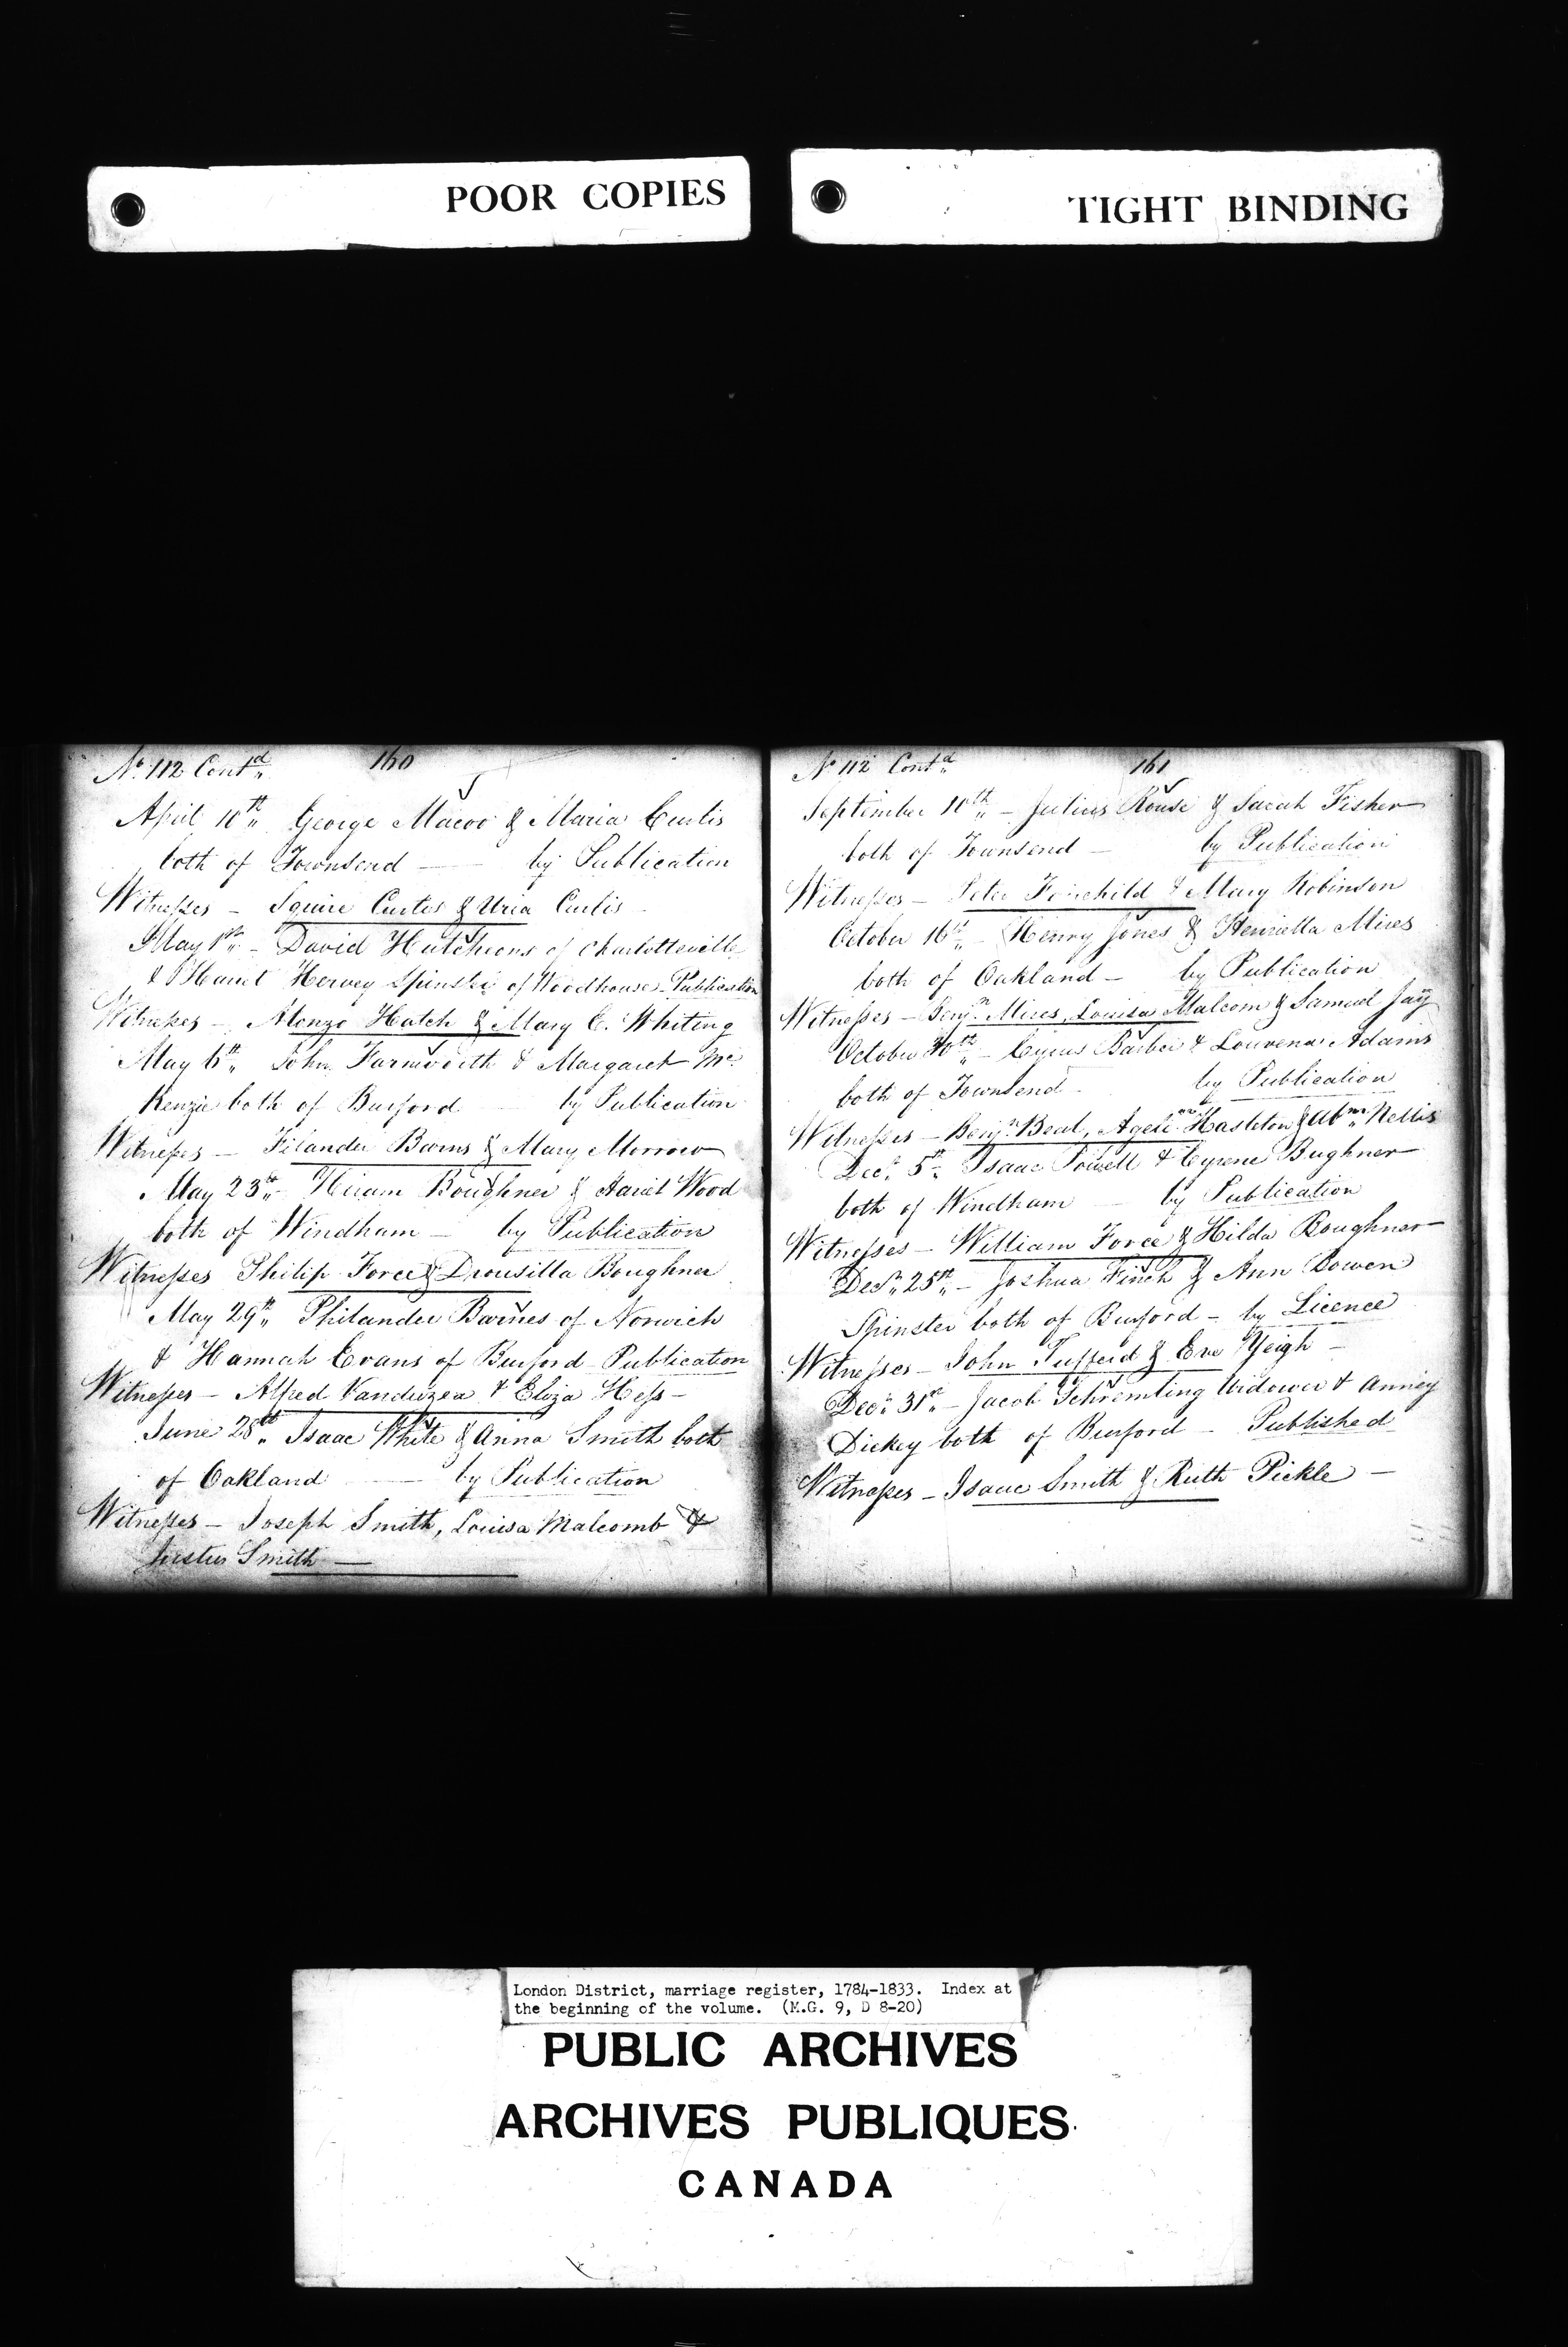 POOR COPIES
TIGHT BINDING
No. 112 Contd. 160
April 10th George Macoo & Maria Curtis
both of Townsend — by Publication
Witnesses – Squire Curtes & Uria Curtis –
May 1st – David Hutchions of Charlotteville
& Harret Hervey Spinster of Woodhouse – Publication
Witnesses – Alonzo Hatch & Mary C. Whiting
May 6th John Farnworth & Margaret Mc
Kenzie both of Burford by Publication
Witnesses – Filander Barns & Mary Morrow
May 23rd Hiram Boughner & Harriet Wood
both of Windham – by Publication
Witnesses Philip Force & Drousilla Boughner
May 29th Philander Barnes of Norwich
& Hannah Evans of Burford – Publication
Witnesses – Alfred Vanduzea & Eliza Hess –
June 28th Isaac White & Anna Smith both
of Oakland — by Publication
Witnesses – Joseph Smith, Louisa Malcomb &
Justus Smith —
No 112 Contd. 161
September 10th – Julius Rouse & Sarah Fisher
both of Townsend – by Publication
Witnesses – Peter Fairchild & Mary Robinson
October 16th – Henry Jones & Henrietta Mires
both of Oakland – by Publication
Witnesses – Benjn. Mires, Louisa Malcom & Samuel Jay
October 30th – Cyrus Barber & Louvena Adams
both of Townsend by Publication
Witnesses – Benjn. Beal, Hasleton & Abm. Nellis
Decr. 5th Isaac Powell & Cyrene Bughner
both of Windham by Publication
Witnesses – William Force & Hilda Boughner
Decr. 25th – Joshua Finch & Ann Bowen
Spinster both of Burford – by Licence
Witnesses – John Tufferd & Eve Yeigh –
Decr. 31st – Jacob Schremling Widower & Anney
Dickey both of Burford – Published
Witnesses – Isaac Smith & Ruth Pickle –
London District, marriage register, 1784-1833. Index at
the beginning of the volume. (M.G. 9, D 8-20)
PUBLIC ARCHIVES
ARCHIVES PUBLIQUES
CANADA